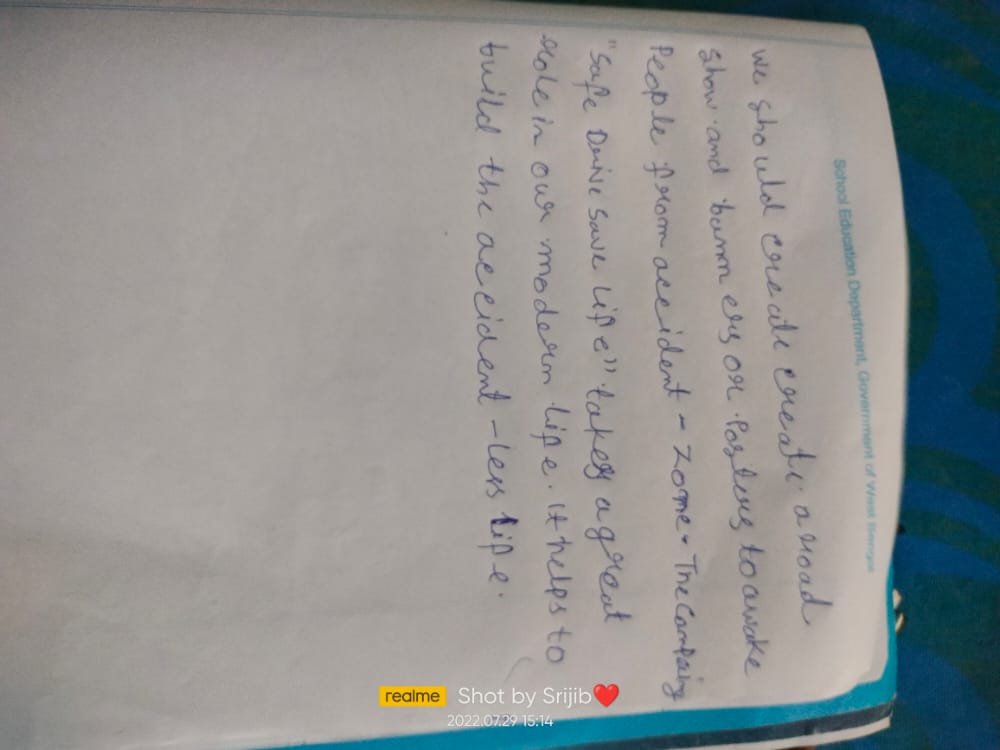 School Education Department, Government of West Bengal
We should create create a road
show and banners or Posters to awake
People from accident - Zone. The Campaing
"Safe Drive Save Life" takes a great
role in our modern life. It helps to
build the accident - less life.
realme Shot by Srijib❤️
2022.07.29 15:14